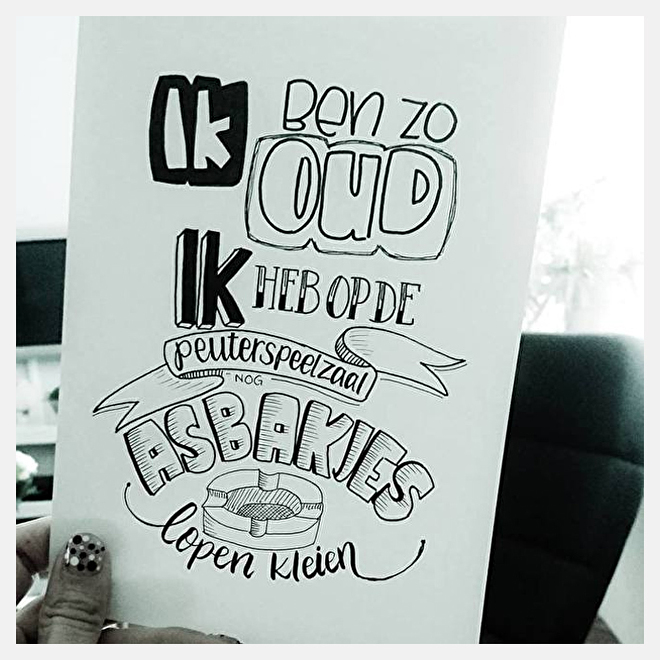 Ik Ben zo
OUD
IK HEB OP DE
peuterspeelzaal
NOG
ASBAKJES
lopen kleien